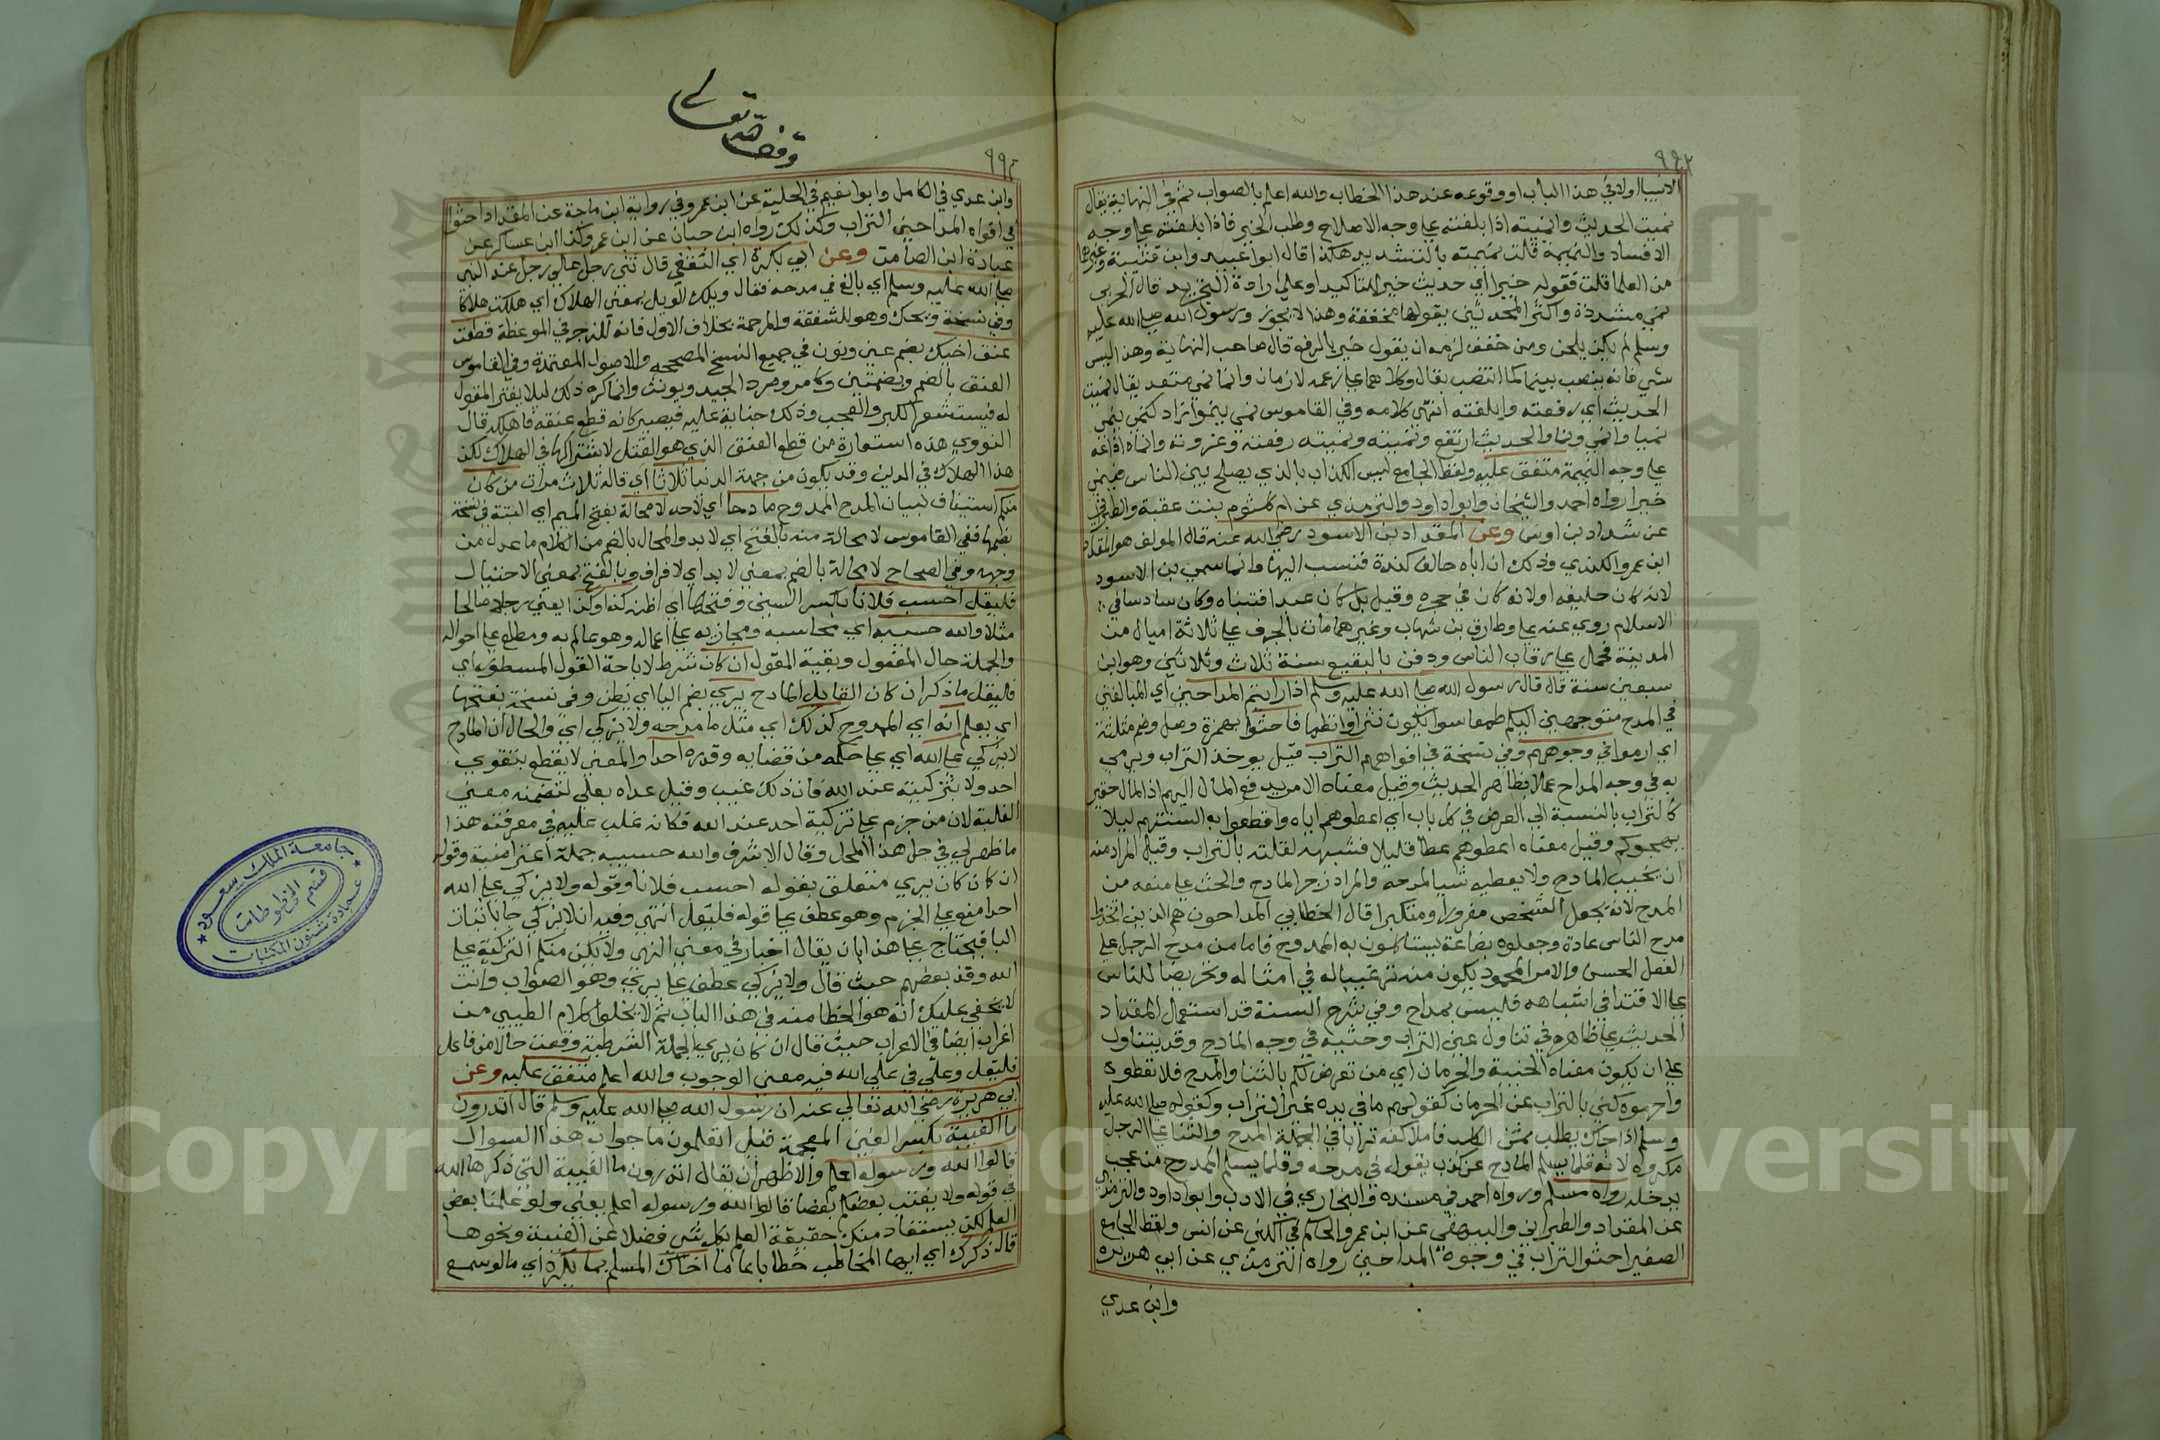 ٩٩٢
الانبيا اولا في هذا الباب او وقوعه عند هذا الخطاب والله اعلم بالصواب ثم في النهاية يقال
نميت الحديث وانميته اذا بلغته على وجه الاصلاح وطلب الخير فاذا بلغته على وجه
الافساد والنميمة قلت نميته بالتشديد هكذا قال ابو عبيد وابن قتيبة وغيرهما
من العلما قلت فقوله خيرا اي حديث خير للتاكيد او على ارادة التجريد قال الحربي
نمي مشددة واكثر المحدثين يقولها مخففة وهذا لا يجوز ورسول الله صلى الله عليه
وسلم لم يكن يلحن ومن خفف لزمه ان يقول خير بالرفع قال صاحب النهاية وهذا ليس
بشي فانه ينصب بينما كما انتصب بقال وكلاهما على زعمه لازمان وانما نمي متعد يقال نميت
الحديث اي رفعته وابلغته انتهى كلامه وفي القاموس نمي ينمو ازداد كنمى ينمي
نميا وانمي ونما والحديث ارتفع ونميته ونميته رفعته وعزوته وانماه اذاعه
على وجه النميمة متفق عليه ولفظ الجامع ليس الكذاب بالذي يصلح بين الناس فينمي
خيرا رواه احمد والشيخان وابو داود والترمذي عن ام كلثوم بنت عقبة والطبراني
عن شداد بن اوس وعن المقداد بن الاسود رضي الله عنه قال المولف هو المقداد
ابن عمرو الكندي وذلك ان اباه حالف كندة فنسب اليها وانما سمي بن الاسود
لانه كان حليفه او لانه كان في حجره وقيل بل كان عبدا فتبناه وكان سادسا في
الاسلام روي عنه علي وطارق بن شهاب وغيرهما مات بالجرف على ثلاثة اميال من
المدينة فحمل على رقاب الناس ودفن بالبقيع سنة ثلاث وثلاثين وهو ابن
سبعين سنة قال قال رسول الله صلى الله عليه وسلم اذا رايتم المداحين اي المبالغين
في المدح متوجهين اليكم طمعا سوا يكون نثرا او نظما فاحثوا بهمزة وصل وضم مثلثة
اي ارموا في وجوههم وفي نسخة في افواههم التراب قيل يوخذ التراب ويرمي
به في وجه المداح عملا بظاهر الحديث وقيل معناه الامر بدفع المال اليهم اذ المال حقير
كالتراب بالنسبة الى العرض في كل باب اي اعطوهم اياه واقطعوا به السنتهم ليلا
يهجوكم وقيل معناه اعطوهم عطا قليلا فشبهه لقلته بالتراب وقيل المراد منه
ان يخيب المادح ولا يعطيه شيا لمدحه والمراد زجر المادح والحث على منعه من
المدح لانه يجعل الشخص مغرورا ومتكبرا قال الخطابي المداحون هم الذين اتخذوا
مدح الناس عادة وجعلوه بضاعة يستاكلون به الممدوح فاما من مدح الرجل على
الفعل الحسن والامر المحمود يكون منه ترغيبا له في امثاله وتحريضا للناس
على الاقتدا في اشباهه فليس بمداح وفي شرح السنة قد استعمل المقداد
الحديث على ظاهره في تناول عين التراب وحثيه في وجه المادح وقد يتناول
على ان يكون معناه الخيبة والحرمان اي من تعرض لكم بالثنا والمدح فلا تعطوه
واحرموه كني بالتراب عن الحرمان كقولهم ما في يده غير التراب وكقوله صلى الله عليه
وسلم اذا جاك يطلب ثمن الكلب فاملا كفه ترابا في الجملة المدح والثنا على الرجل
مكروه لانه قلما يسلم المادح عن كذب يقوله في مدحه وقلما يسلم الممدوح من عجب
يدخله رواه مسلم ورواه احمد في مسنده والبخاري في الادب وابو داود والترمذي
عن المقداد والطبراني والبيهقي عن ابن عمر والحاكم في الكنى عن انس ولفظ الجامع
الصغير احثوا التراب في وجوه المداحين رواه الترمذي عن ابي هريرة
وابن عدي
وقف لله تعالى
٩٩٣
وابن عدي في الكامل وابو نعيم في الحلية عن ابن عمرو في رواية ابن ماجة عن المقداد احثوا
في افواه المداحين التراب وكذلك رواه ابن حبان عن ابن عمر وكذا ابن عساكر عن
عبادة ابن الصامت وعن ابي بكرة اي الثقفي قال ثني رجل على رجل عند النبي
صلى الله عليه وسلم اي بالغ في مدحه فقال ويلك الويل بمعنى الهلاك اي هلكت هلاكا
وفي نسخة ويحك وهو للشفقة والمرحمة بخلاف الاول فانه للزجر في الموعظة قطعت
عنق اخيك بضم عين ونون في جميع النسخ المصححه والاصول المعتمدة وفي القاموس
العنق بالضم وبضمتين وكامير وصرد الجيد ويونث وانما كره ذلك ليلا يغتر المقول
له فيستشعر الكبر والعجب وذلك جناية عليه فيصير كانه قطع عنقه فاهلكه قال
النووي هذه استعارة من قطع العنق الذي هو القتل لاشتراكهما في الهلاك لكن
هذا الهلاك في الدين وقد يكون من جهة الدنيا ثلاثا اي قاله ثلاث مرات من كان
منكم استيناف لبيان المدح الممدوح مادحا اي لاحد لا محالة بفتح الميم اي البتة في نسخة
بضمها ففي القاموس لا محالة منه بالفتح اي لا بد والمحال بالضم من الكلام ما عدل من
وجهه وفي الصحاح لا محالة بالضم بمعنى لا بد اي لا فراق وبالفتح بمعنى الاحتيال
فليقل احسب فلانا بكسر السين وفتحها اي اظنه كذا وكذا يعني رجلا صالحا
مثلا والله حسيبه اي محاسبه ومجازيه على اعماله وهو عالم به ومطلع على احواله
والجملة حال المفعول وبقية المقول ان كان شرط لاباحة القول المسطور اي
فليقل ما ذكر ان كان القايل المادح يري بضم اليا اي يظن وفي نسخة بفتحها
اي يعلم انه اي الممدوح كذلك اي مثل ما مدحه ولا يزكي اي والحال ان المادح
لا يزكي على الله اي على حكمه من قضايه وقدره احدا والمعنى لا يقطع بتقوي
احد ولا بتزكيته عند الله فان ذلك غيب وقيل عداه بعلى لتضمنه معنى
الغلبة لان من جزم على تزكية احد عند الله فكانه غلب عليه في معرفته هذا
ما ظهر لي في حل هذا المحل وقال الاشرف والله حسيبه جملة اعتراضية وقوله
ان كان يرى متعلق بقوله احسب فلانا وقوله ولا يزكي على الله
احدا منع على الجزم وهو عطف على قوله فليقل انتهى وفيه ان لا يزكي جا باثبات
اليا فيحتاج على هذا بان يقال اخبار في معنى النهي ولا يكن منكم التزكية على
الله وقد بعضهم حيث قال ولا يزكي عطف على يرى وهو الصواب وانت
لا يخفى عليك انه هو الخطا منه في هذا الباب ثم لا يخلو كلام الطيبي من
اغراب ايضا في الاعراب حيث قال ان كان يرى الجملة الشرطية وقعت حالا من فاعل
فليقل وعلى في على الله فيه معنى الوجوب والله اعلم متفق عليه وعن
ابي هريرة رضي الله تعالى عنه ان رسول الله صلى الله عليه وسلم قال اتدرون
ما الغيبة بكسر الغين المعجمة قيل اتعلمون ما جواب هذا السوال
قالوا الله ورسوله اعلم والاظهر ان يقال اتدرون ما الغيبة التي ذكرها الله
في قوله ولا يغتب بعضكم بعضا قالوا الله ورسوله اعلم يعني ولو علمنا بعض
العلم لكن يستفاد منك حقيقة العلم بكل شي فضلا عن الغيبة ونحوها
قال ذكرك اي ايها المخاطب خطابا عاما اخاك المسلم بما يكره اي ما لو سمع
جامعة الملك سعود
قسم المخطوطات
عمادة شئون المكتبات
Copyright © King Saud University